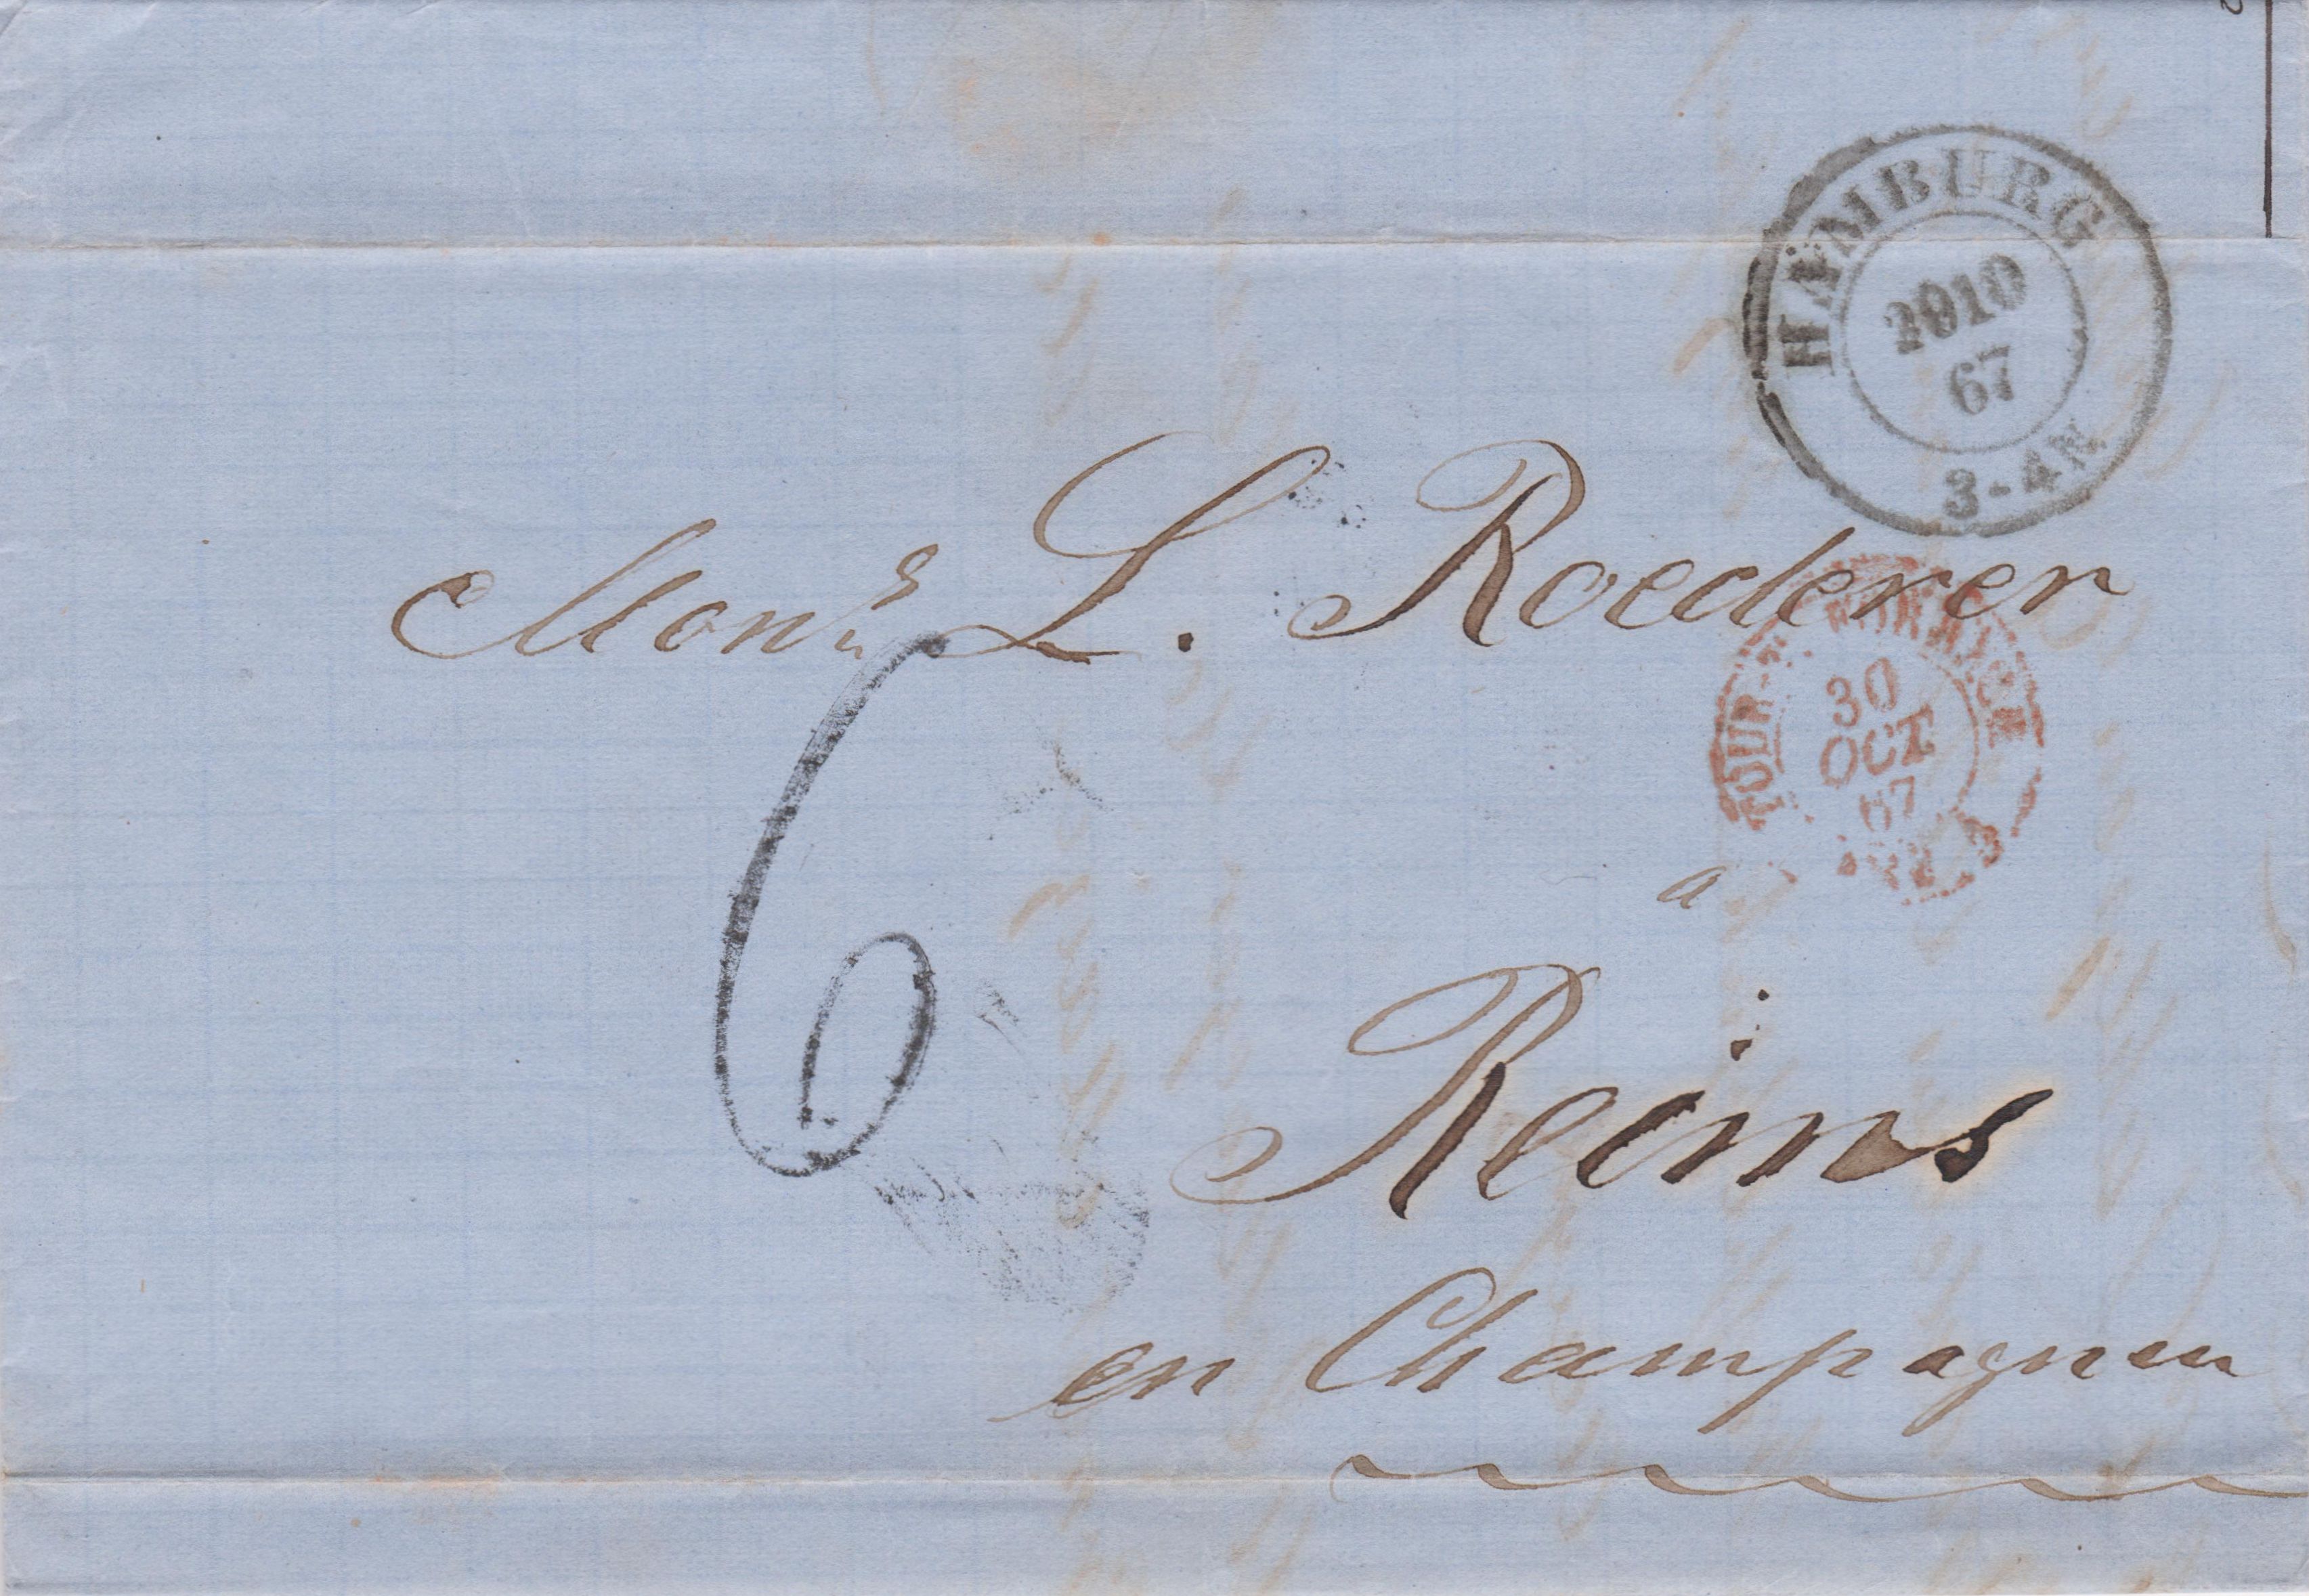 HAMBURG
29 10
67
3-4 N.
Monsr L. Roederer
TOUR-T.
30
OCT
67
6
a
Reims
en Champagnen